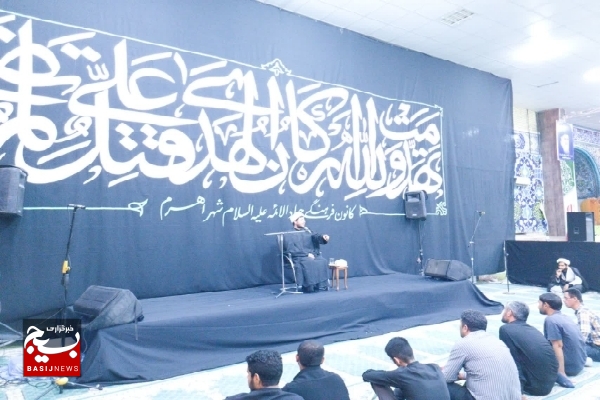 تهدمت والله ارکان الهدی قتل علی
کانون فرهنگی جوادالائمه علیه السلام شهر اهرم
خبرگزاری
بسیج
BASIJNEWS